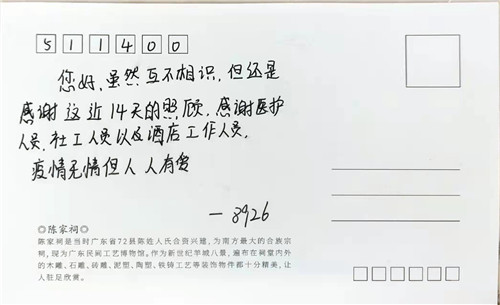 511400
您好,虽然互不相识,但还是
感谢这近14天的照顾,感谢医护
人员,社工人员以及酒店工作人员,
疫情无情但人人有爱
—8926
◎陈家祠◎
陈家祠是当时广东省72县陈姓人氏合资兴建,为南方最大的合族宗
祠,现为广东民间工艺博物馆。作为新世纪羊城八景,遍布在祠堂内外
的木雕、石雕、砖雕、泥塑、陶塑、铁铸工艺等装饰物件都十分精美,让
人驻足欣赏。